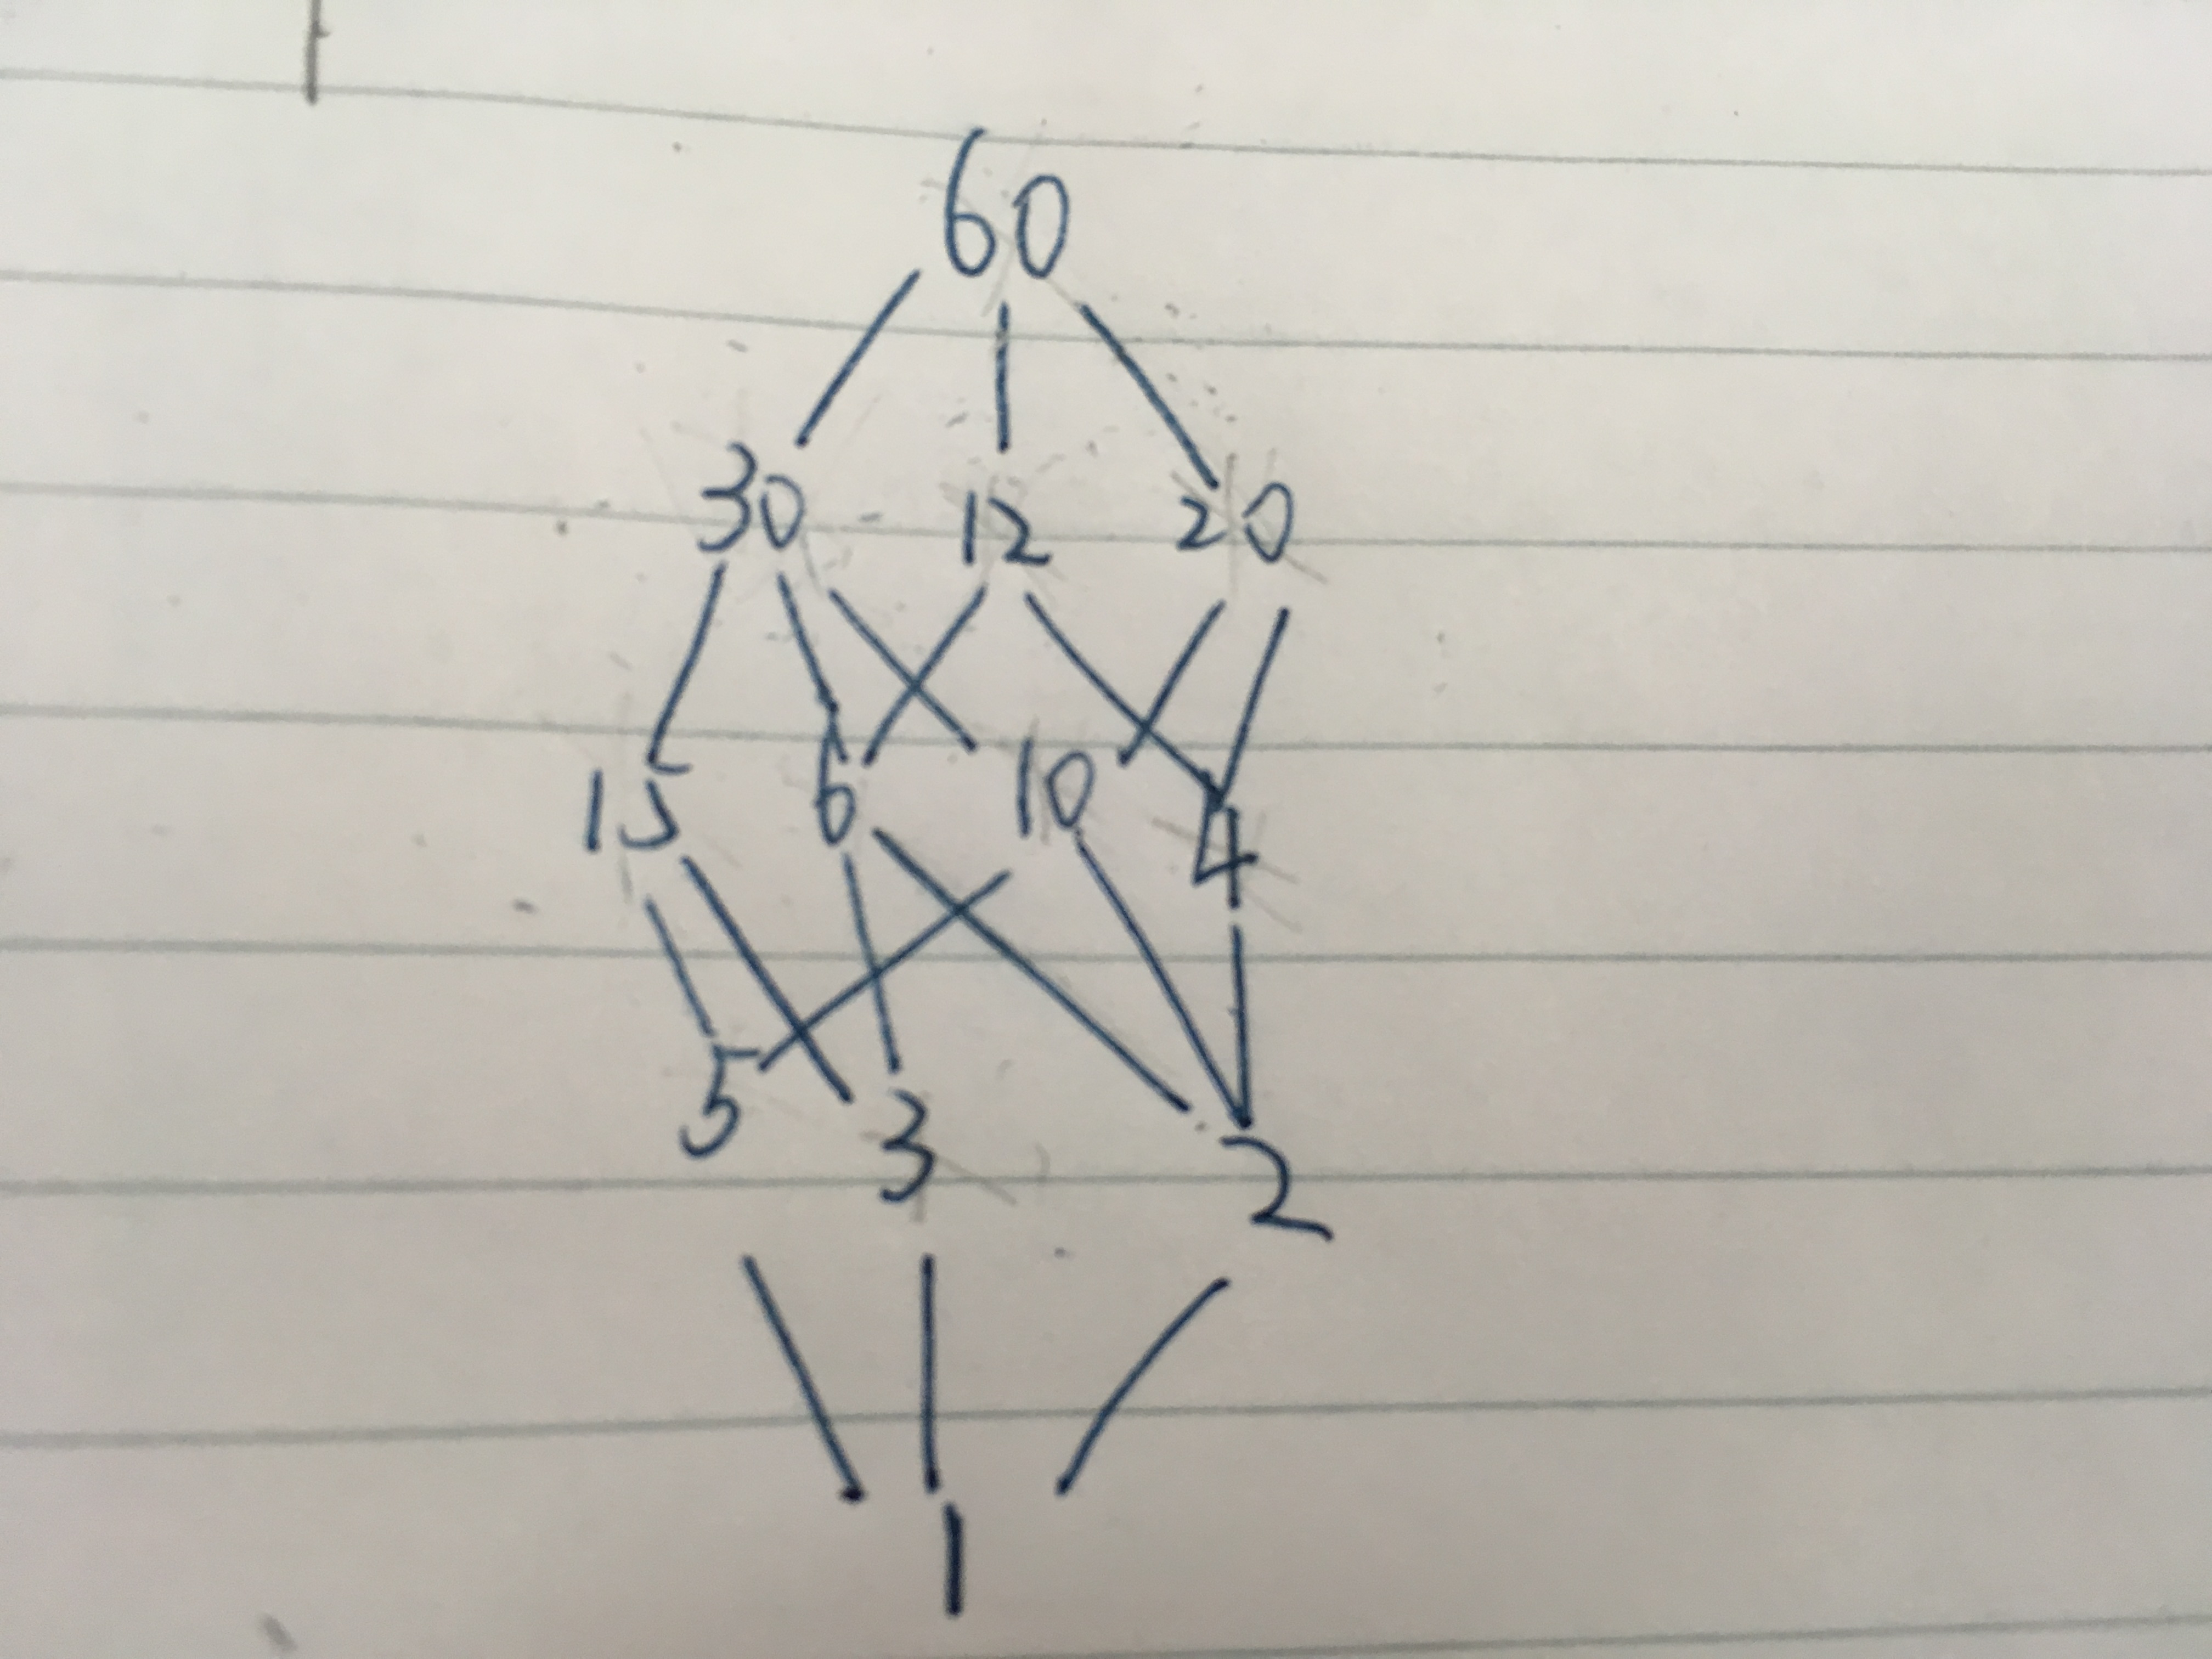 60
30 12 20
15 6 10 4
5 3 2
1